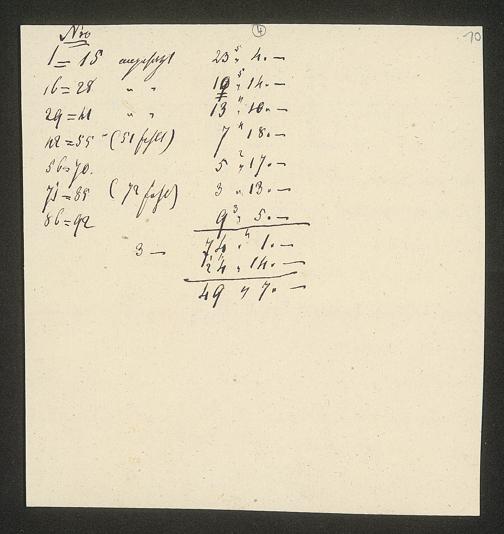 ④ 10
Nro
1=15 angefügt 23 " 4. —
16=28 " " 10 " 14. —
29=41 " " 13 " 10. —
42=55 (51 fehlt) 7 " 18. —
56=70. 5 " 17. —
71=85 (72 fehlt) 3 " 13. —
86=92 9 " 5. —
3 — 74 " 1. —
24 " 14. —
49 " 7. —